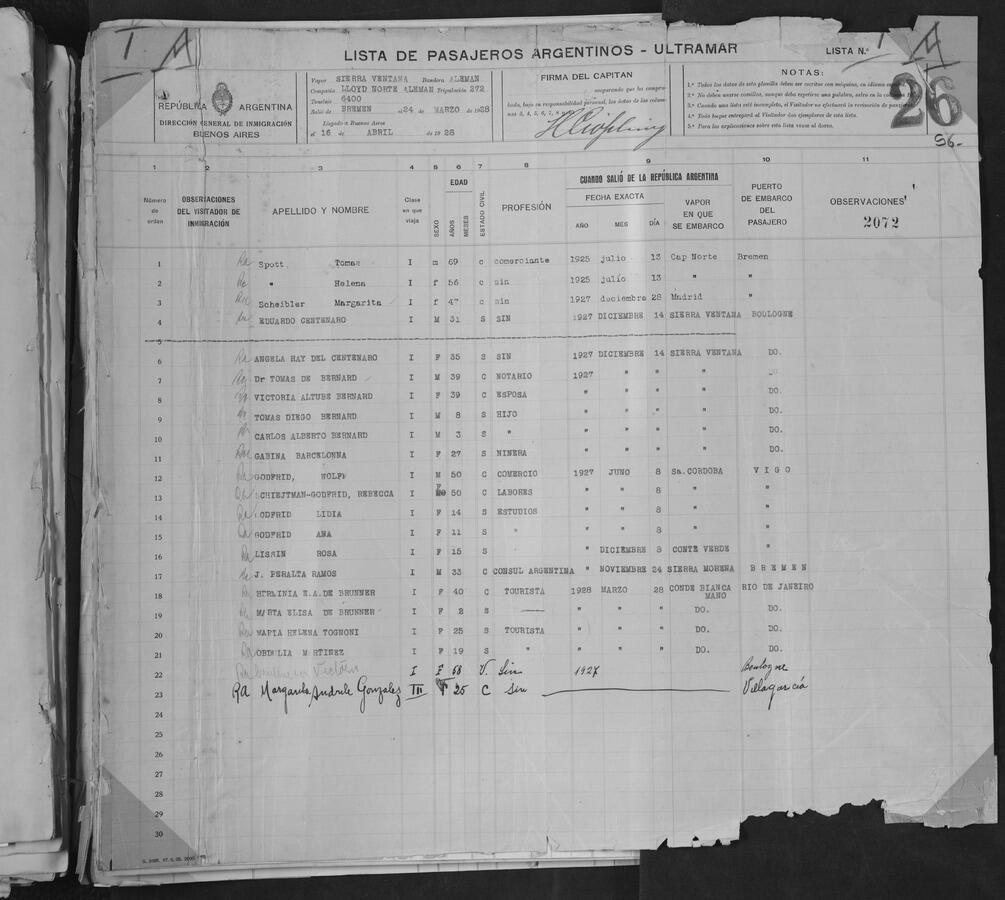 I A
LISTA DE PASAJEROS ARGENTINOS - ULTRAMAR
LISTA N.º 1 A
26
56-
REPÚBLICA ARGENTINA
DIRECCIÓN GENERAL DE INMIGRACIÓN
BUENOS AIRES
Vapor SIERRA VENTANA Bandera ALEMAN
Compañía LLOYD NORTE ALEMAN Tripulación 272
Tonelaje 6400
Salió de BREMEN el 24 de MARZO de 1928
Llegado a Buenos Aires
el 16 de ABRIL de 1928
FIRMA DEL CAPITAN
asegurando que ha compro-
bado, bajo su responsabilidad personal, los datos de las colum-
nas 3, 4, 5, 6, 7, 8 y
NOTAS:
1.ª Todos los datos de esta planilla deben ser escritos con máquina, en idioma
2.ª No deben usarse comillas, aunque deba repetirse una palabra, salvo en la columna
3.ª Cuando una lista esté incompleta, el Visitador no efectuará la revisación de
4.ª Todo buque entregará al Visitador dos ejemplares de esta lista.
5.ª Para las explicaciones sobre esta lista véase al dorso.
1 2 3 4 5 6 7 8 9 10 11
Número de orden
OBSERVACIONES DEL VISITADOR DE INMIGRACIÓN
APELLIDO Y NOMBRE
Clase en que viaja
SEXO
EDAD
AÑOS
MESES
ESTADO CIVIL
PROFESIÓN
CUANDO SALIÓ DE LA REPÚBLICA ARGENTINA
FECHA EXACTA
AÑO MES DÍA
VAPOR EN QUE SE EMBARCO
PUERTO DE EMBARCO DEL PASAJERO
OBSERVACIONES
2072
1 Ra Spott Tomas I m 69 c comerciante 1925 julio 13 Cap Norte Bremen
2 Ra " Helena I f 56 c sin 1925 julio 13 " "
3 Ra Scheibler Margarita I f 47 c sin 1927 dociembre 28 Madrid "
4 Ra EDUARDO CENTENARO I M 31 S SIN 1927 DICIEMBRE 14 SIERRA VENTANA BOULOGNE
5
6 Ra ANGELA HAY DEL CENTENARO I F 35 S SIN 1927 DICIEMBRE 14 SIERRA VENTANA DO.
7 Ra Dr TOMAS DE BERNARD I M 39 C NOTARIO 1927 " " " DO.
8 Ra VICTORIA ALTUBE BERNARD I F 39 C ESPOSA " " " " DO.
9 Ra TOMAS DIEGO BERNARD I M 8 S HIJO " " " " DO.
10 Ra CARLOS ALBERTO BERNARD I M 3 S " " " " " DO.
11 Ra GABINA BARCELONNA I F 27 S NINERA " " " " DO.
12 Ra GODFRID, WOLFF I M 50 C COMERCIO 1927 JUNO 8 Sa. CORDOBA VIGO
13 Ra SCHIEJTMAN-GODFRID, REBECCA I F 50 C LABORES " " 8 " "
14 Ra GODFRID LIDIA I F 14 S ESTUDIOS " " 8 " "
15 Ra GODFRID ANA I F 11 S " " " 8 " "
16 Ra LISSIN ROSA I F 15 S " DICIEMBRE 8 CONTE VERDE "
17 Ra J. PERALTA RAMOS I M 33 C CONSUL ARGENTINA " NOVIEMBRE 24 SIERRA MORENA BREMEN
18 Ra HERLINIA E.A. DE BRUNNER I F 40 C TOURISTA 1928 MARZO 28 CONDE BIANCA MANO RIO DE JANEIRO
19 Ra MARTA ELISA DE BRUNNER I F 2 S —— " " " DO. DO.
20 Ra MARTA HELENA TOGNONI I F 25 S TOURISTA " " " DO. DO.
21 Ra OBDULIA MARTINEZ I F 19 S " " " " DO. DO.
22 Ra I F 58 V. Sin 1927 Boulogne
23 RA Margarita Andrele Gonzalez III F 25 C Sin Villagarcía
24
25
26
27
28
29
30